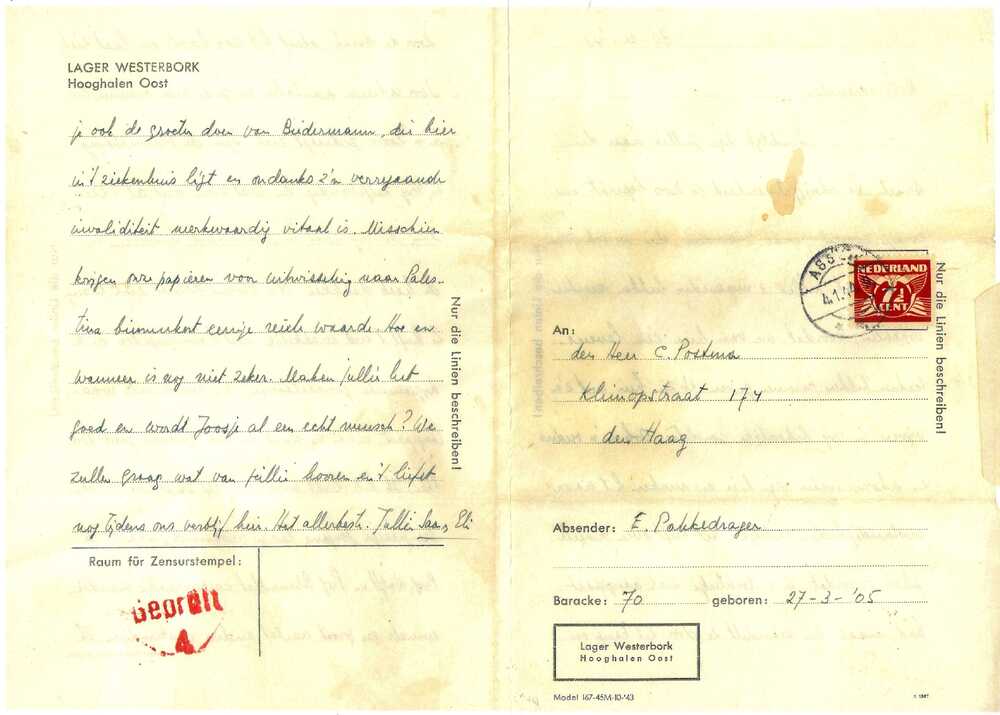 LAGER WESTERBORK
Hooghalen Oost
je ook de groeten doen van Biedermann, die hier
in 't ziekenhuis ligt en ondanks z'n vergaande
invaliditeit merkwaardig vitaal is. Misschien
krijgen onze papieren voor uitwisseling naar Pales-
tina binnenkort eenige waarde. Hoe en
wanneer is nog niet zeker. Maken jullie het
goed en wordt Joosje al een echt mensch? We
zullen graag wat van jullie hooren en 't liefst
nog tijdens ons verblijf hier. Het allerbeste. Jullie Saar, Eli
Nur die Linien beschreiben!
Raum für Zensurstempel:
Geprüft
4
ASS
4.1.44
NEDERLAND
7½
CENT
Nur die Linien beschreiben!
An:
den Heer C. Postma
Klimopstraat 174
den Haag
Absender: E. Pakkedrager
Baracke: 70 geboren: 27-3-'05
Lager Westerbork
Hooghalen Oost
Model 167-45M-10-'43